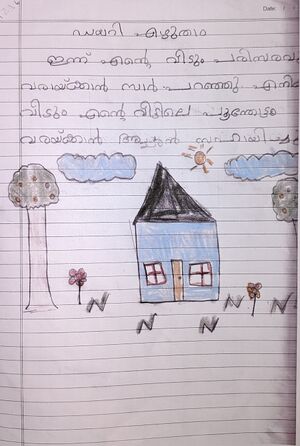 ഡയറി എഴുതാം
ഇന്ന് എന്റെ വീടും പരിസരവും
വരയ്ക്കാൻ സാർ പറഞ്ഞു എനി
വീടും എന്റെ വീട്ടിലെ പൂന്തോട്ടം
വരയ്ക്കാൻ അച്ഛൻ സഹായിച്ചു
Date: